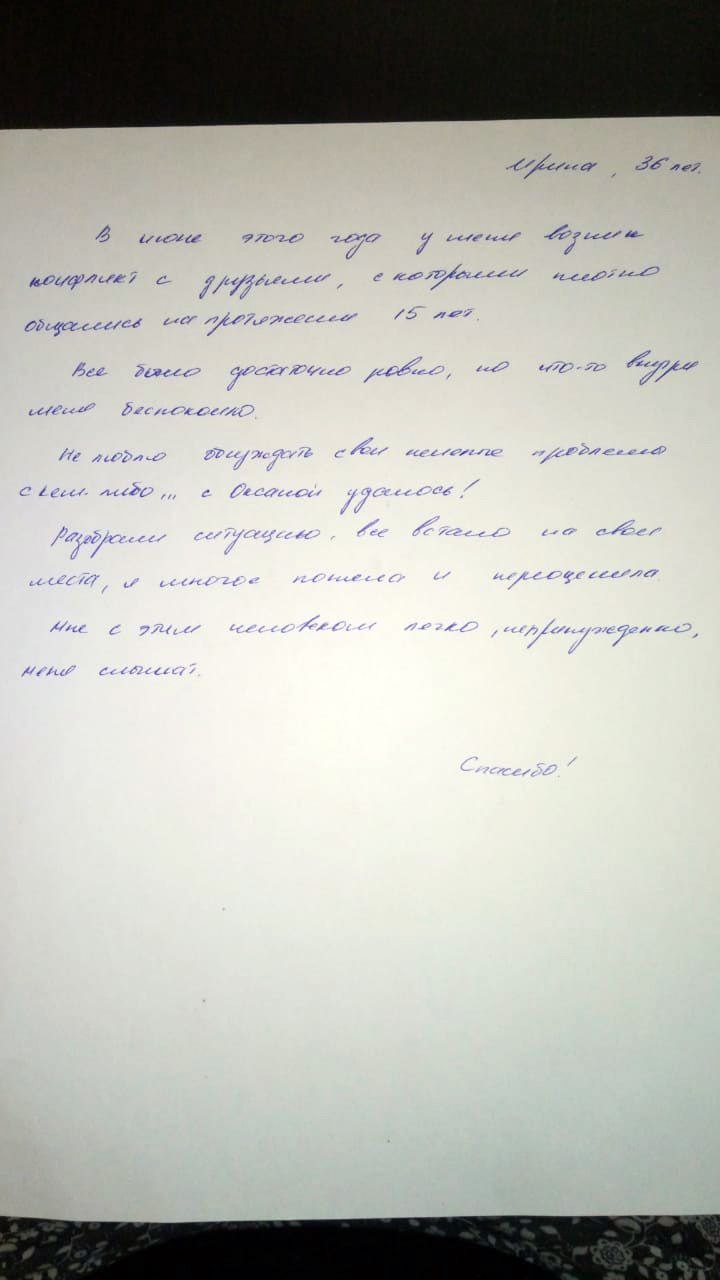 Ирина, 36 лет.
В июне этого года у меня возник
конфликт с друзьями, с которыми плотно
общались на протяжении 15 лет.
Все было достаточно ровно, но что-то внутри
меня беспокоило.
Не люблю обсуждать свои личные проблемы
с кем-либо... с Оксаной удалось!
Разобрали ситуацию, все встало на свои
места, я многое поняла и переоценила.
Мне с этим человеком легко, непринужденно,
меня слышат.
Спасибо!